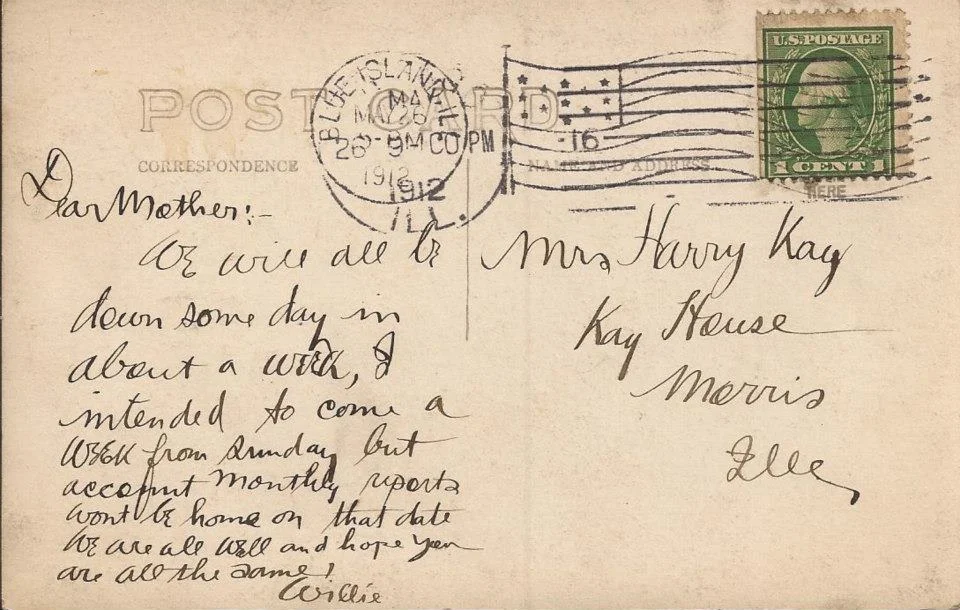 POST CARD
CORRESPONDENCE
NAME AND ADDRESS
HERE
U.S. POSTAGE
1 CENT 1
BLUE ISLAND, ILL.
MAY
MAY 26
26 9 PM
1912
1912
ILL.
16
Dear Mother:-
We will all be
down some day in
about a week, I
intended to come a
week from Sunday but
account monthly reports
wont be home on that date
We are all well and hope you
are all the same!
Willie
Mrs Harry Kay
Kay House
Morris
Ills,